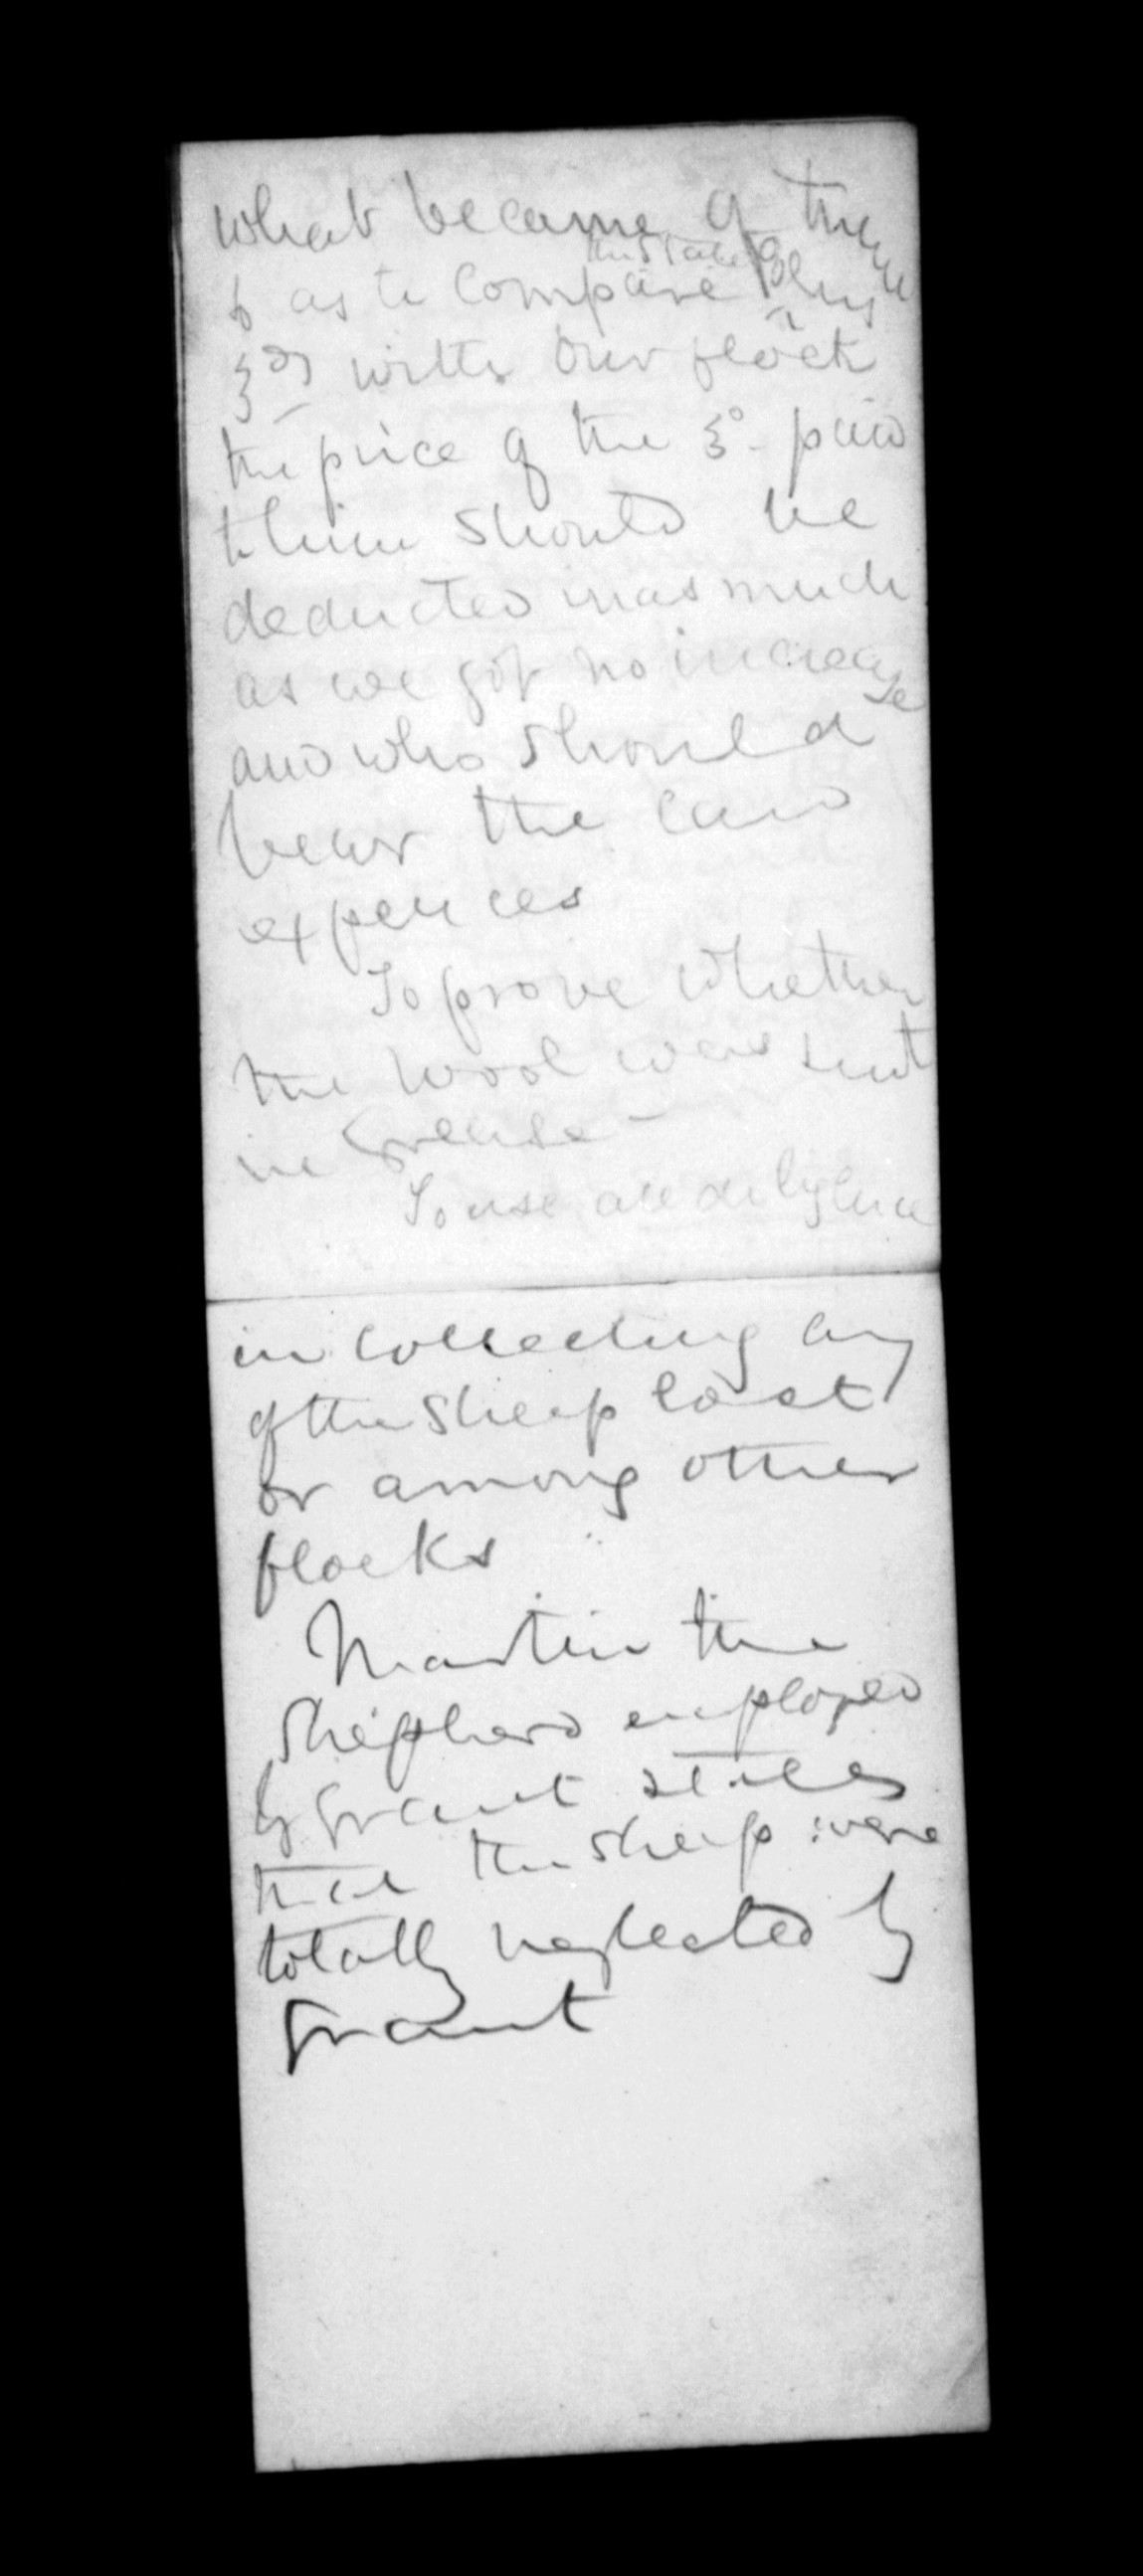 what became of them
& as to compare the state of his
30 with our flock
the price of the 30 paid
to him should be
deducted inasmuch
as we got no increase
and who should
bear the law
expences
To prove whether
the wool was sent
in Grease -
To use all diligence
in collecting any
of the Sheep lost
or among other
flocks
Martin the
Shepherd employed
by Grant states
that the sheep were
totally neglected by
Grant